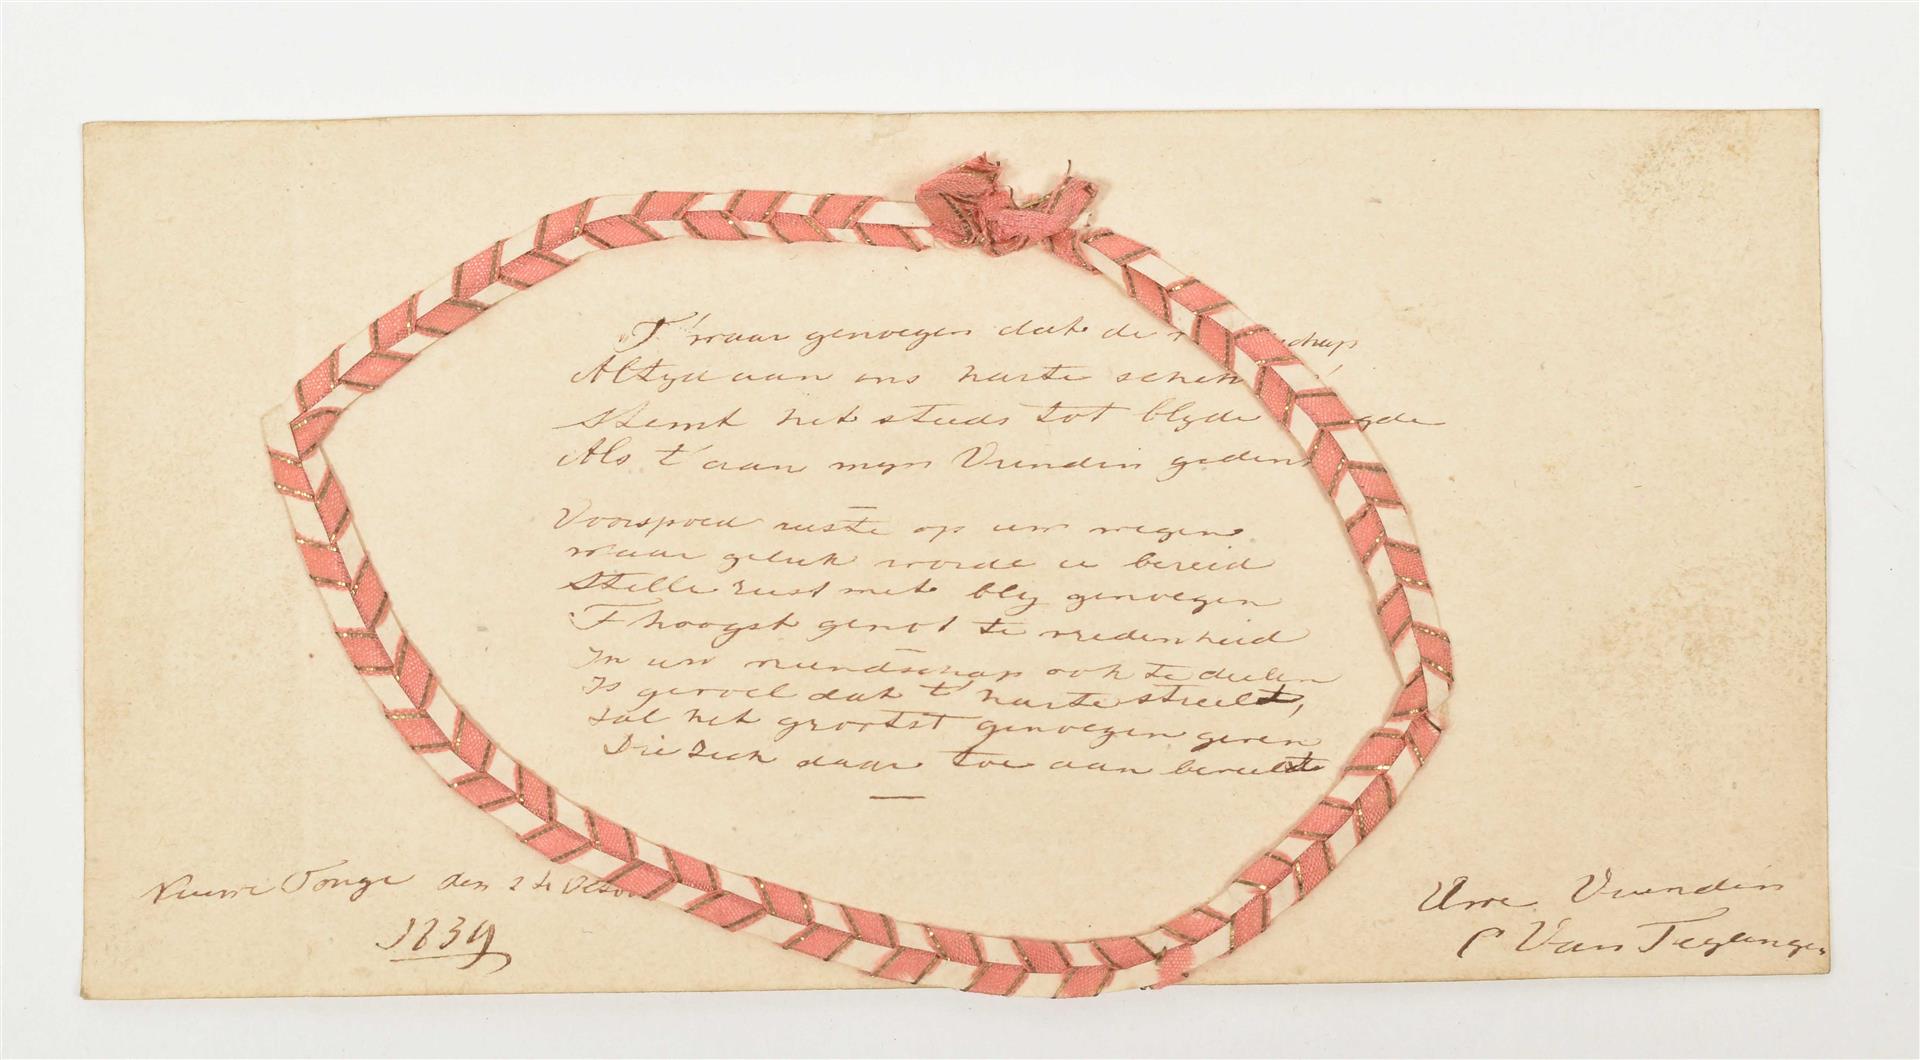 T' waar genoegen dat de
Altyd aan ons harte schen
Stemt het steeds tot blyde
Als t' aan myn Vrindin geden
Voorspoed ruste op uw wegen
waar geluk worde u bereid
Stille rust met bly genoegen
T hoogst genot te vredenheid
In uw vrindschap ook te deelen
Is gevoel dat t' harte streelt,
zal het grootst genoegen geven
Die zich daar toe aan beveelt
Nieuwe Tonge den 24 Octo
1839
Uwe Vrindin
C Van Teylingen